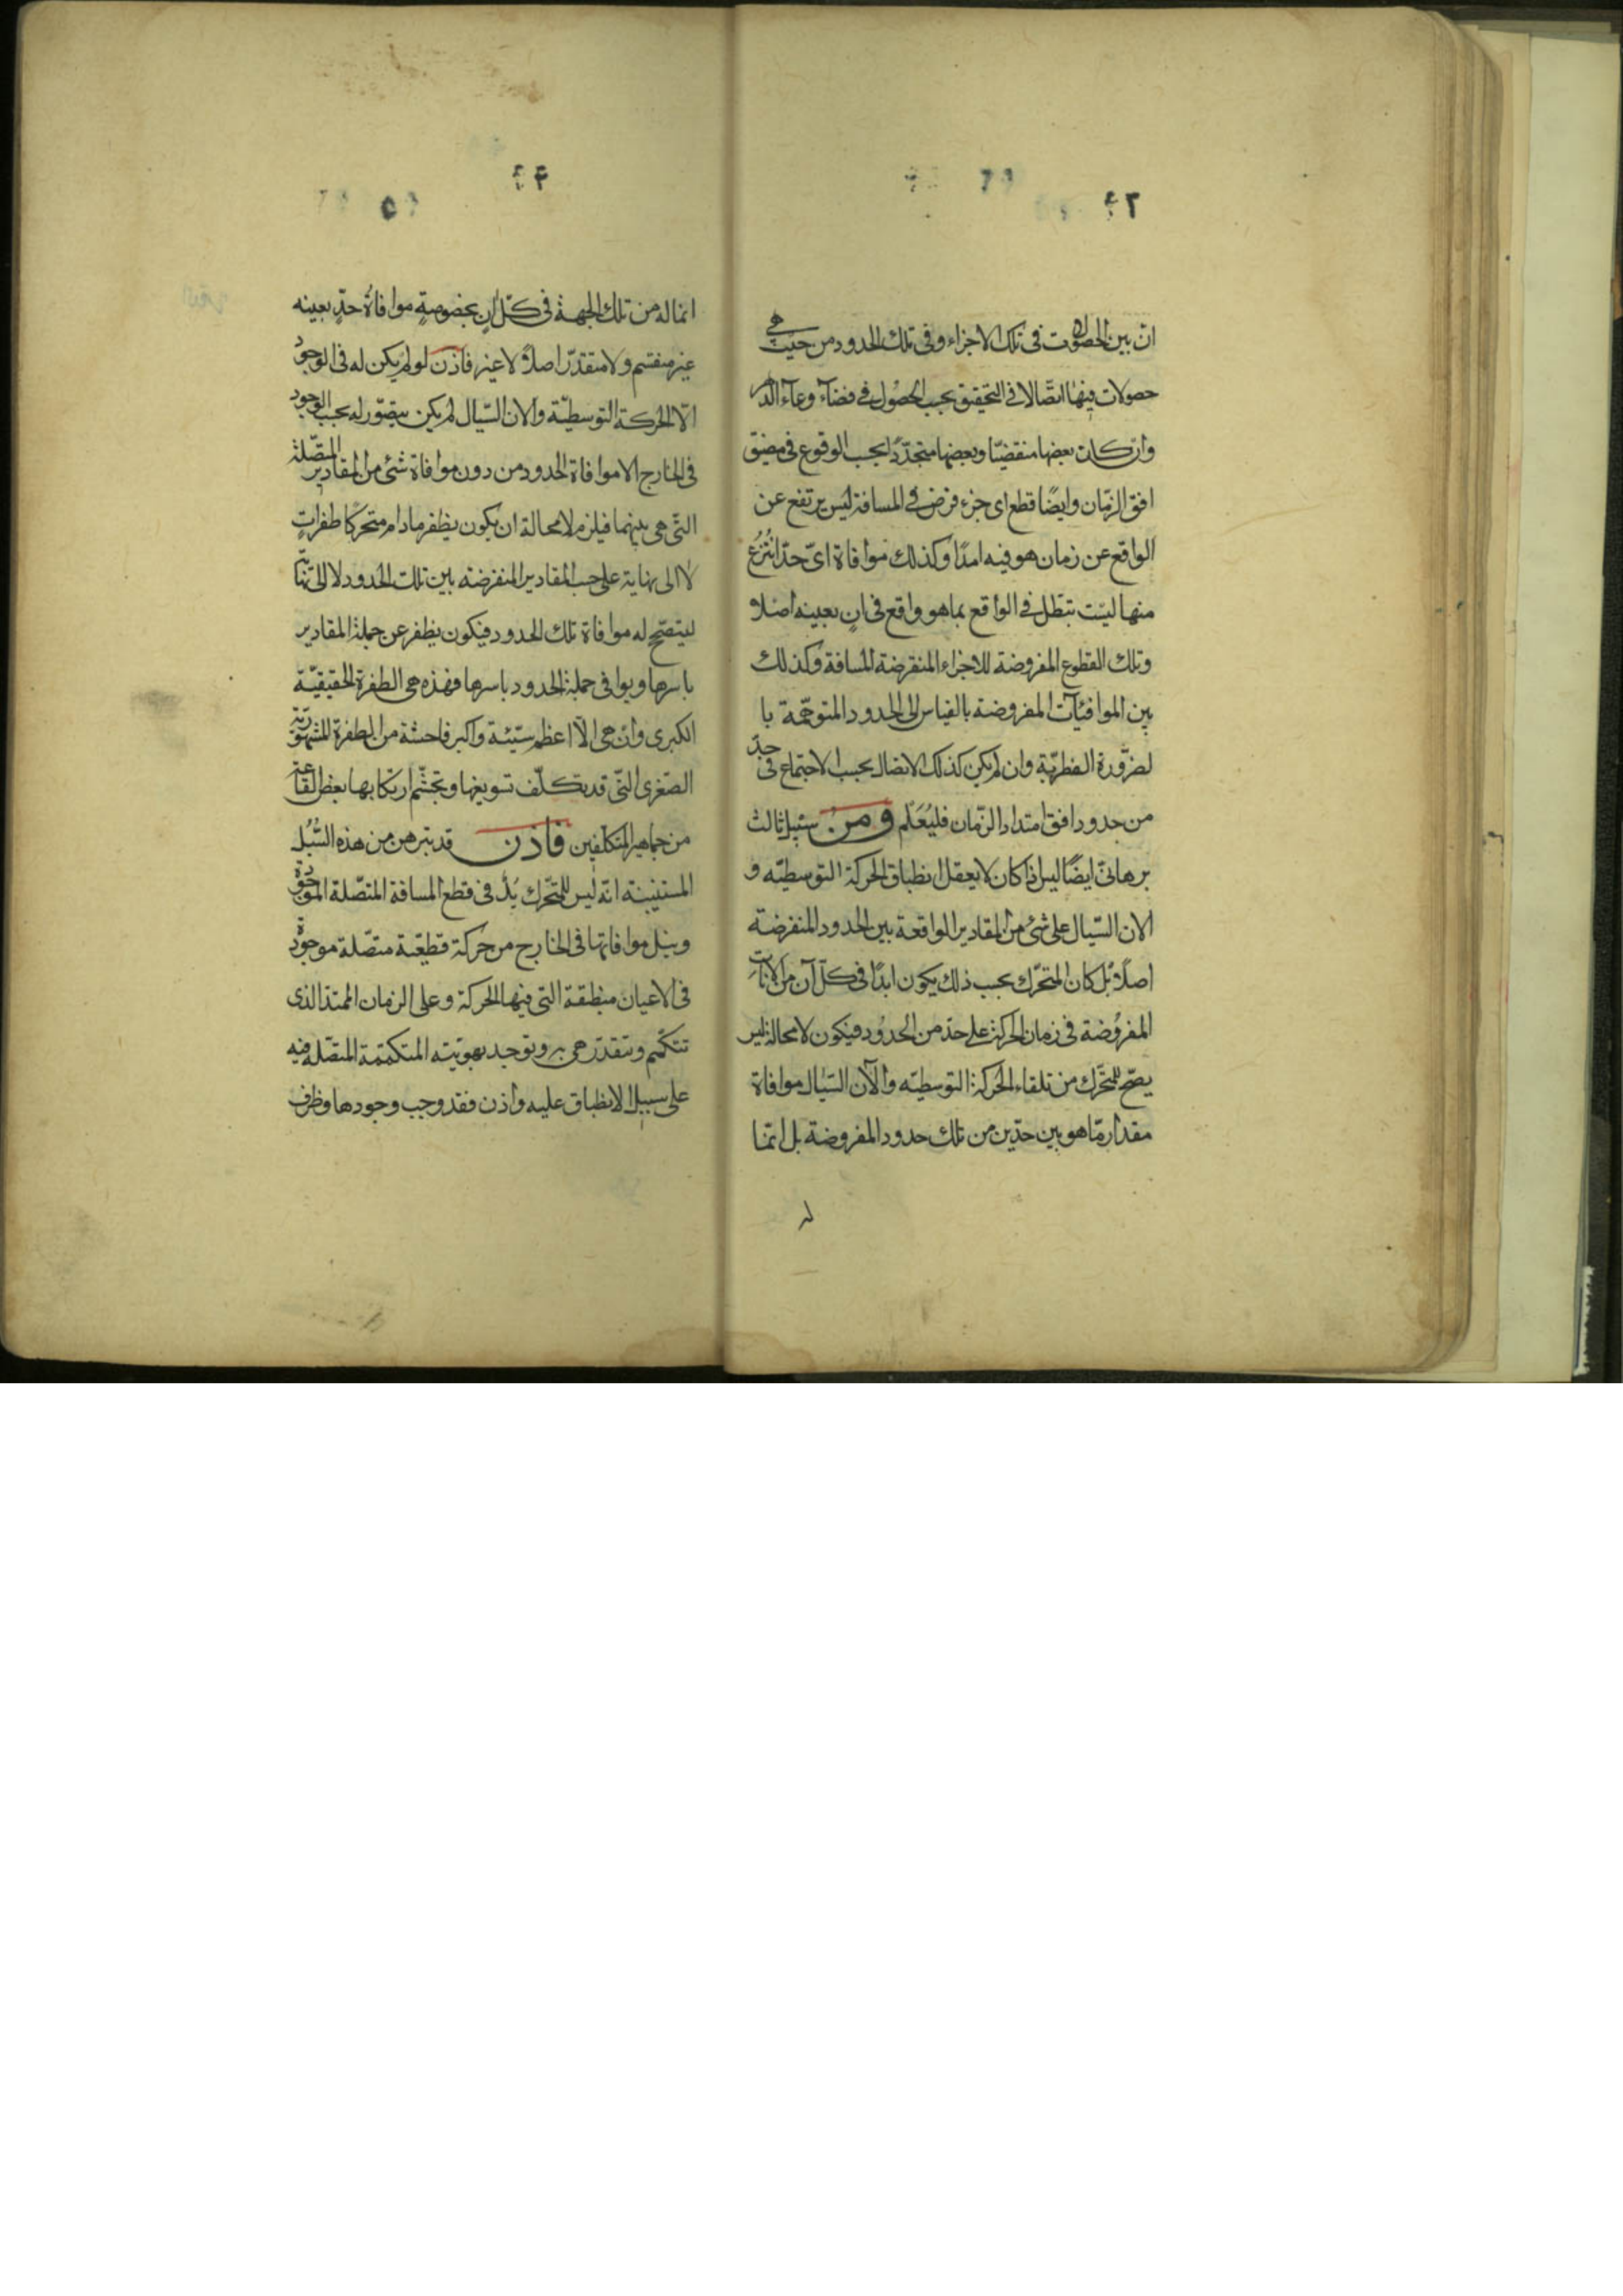 ٤٢
ان بين الحصولات فى تلك الاجزاء وفى تلك الحدود من حيث هى
حصولات فيها اتصالا فى التحقيق بحسب الحصُول فى فضآء وعآء الدهر
وان كان بعضها منقضيًا وبعضها متجدّدًا بحسب الوقوع فى مضيق
افق الزمان وايضًا قطع اى جزء فرض فى المسافة ليس يرتفع عن
الواقع عن زمان هو فيه امدًا وكذلك موافاة اىّ حدّ انتُزعُ
منها ليست تبطل فى الواقع بما هو واقع فى انٍ بعينه اصلا و
وتلك القطوع المفروضة للاجزاء المنفرضة للمسافة وكذلك
بين الموافيات المفروضة بالقياس الى الحدود المتوهّمة با
لضرورة الفطريّة وان لم يكن كذلك الاتصال بحسب الاجتماع فى حدّ
من حدود افق امتداد الزمان فليُعَلم ومن سبيل ثالث
برهانىّ ايضًا اليس اذا كان لا يعقل انطباق الحركة التوسطيّه و
الان السّيال على شئ من المقادير الواقعة بين الحدود المنفرضة
اصلًا بل كان المتحرّك بحسب ذلك يكون ابدًا فى كلّ آن من الانات
المفروُضة فى زمان الحركة على حدّ من الحدوُد فيكون لا محالة ليس
يصحّ للمتحرّك من تلقاء الحركة التوسطيّه والآن السّيال موافاة
مقدار مّا هو بين حدّين من تلك حدود المفروضة بل انمّا
له
٤٤
انما له من تلك الجهة فى كلّ انٍ بخصوصةٍ موافاةُ حدّ بعينه
غير منقسم ولا متقدّر اصلاً لا غير فاذن لو لم يكن له فى الوجوُد
الّا الحركة التوسطيّة والان السّيال لم يكن يتصوّر له بحسب الوجود
فى الخارج الا موافاة الحدود من دون موافاة شئ من المقادير المتصّلة
التّى هى بينهما فيلزم لا محالة ان يكون يطفر مادام متحركًا طفراتٍ
لا الى نهاية على حسب المقادير المنفرضة بين تلك الحدود لا الى نهاية
ليتصحّح له موافاة تلك الحدود فيكون يطفر عن جملة المقادير
باسرها ويوافى جملة الحدود باسرها فهذه هى الطفرة الحقيقيّة
الكبرى وان هى الّا اعظم سيّئة واكبر فاحشة من الطفرة المشهوُرية
الصّغرى التّى قد تكلّف تسويغها وتجشّم ارتكابها بعض القاعة
من جماهير المتكلّفين فاذن قد تبرهن من هذه السُّبُل
المستبينة انّه ليس للمتحّرك بُدٌّ فى قطع المسافة المتصّلة الموجوُدة
ونيل موافاتها فى الخارج من حركة قطعيّة متصّلة موجوُدة
فى الاعيان منطبقة التى فيها الحركة وعلى الزمان الممتد الذى
تتكمّم وتتقدّر هى به وتوجد بهويّته المتكممّة المتصّلة فيه
على سبيل الانطباق عليه واذن فقد وجب وجودها وظرف